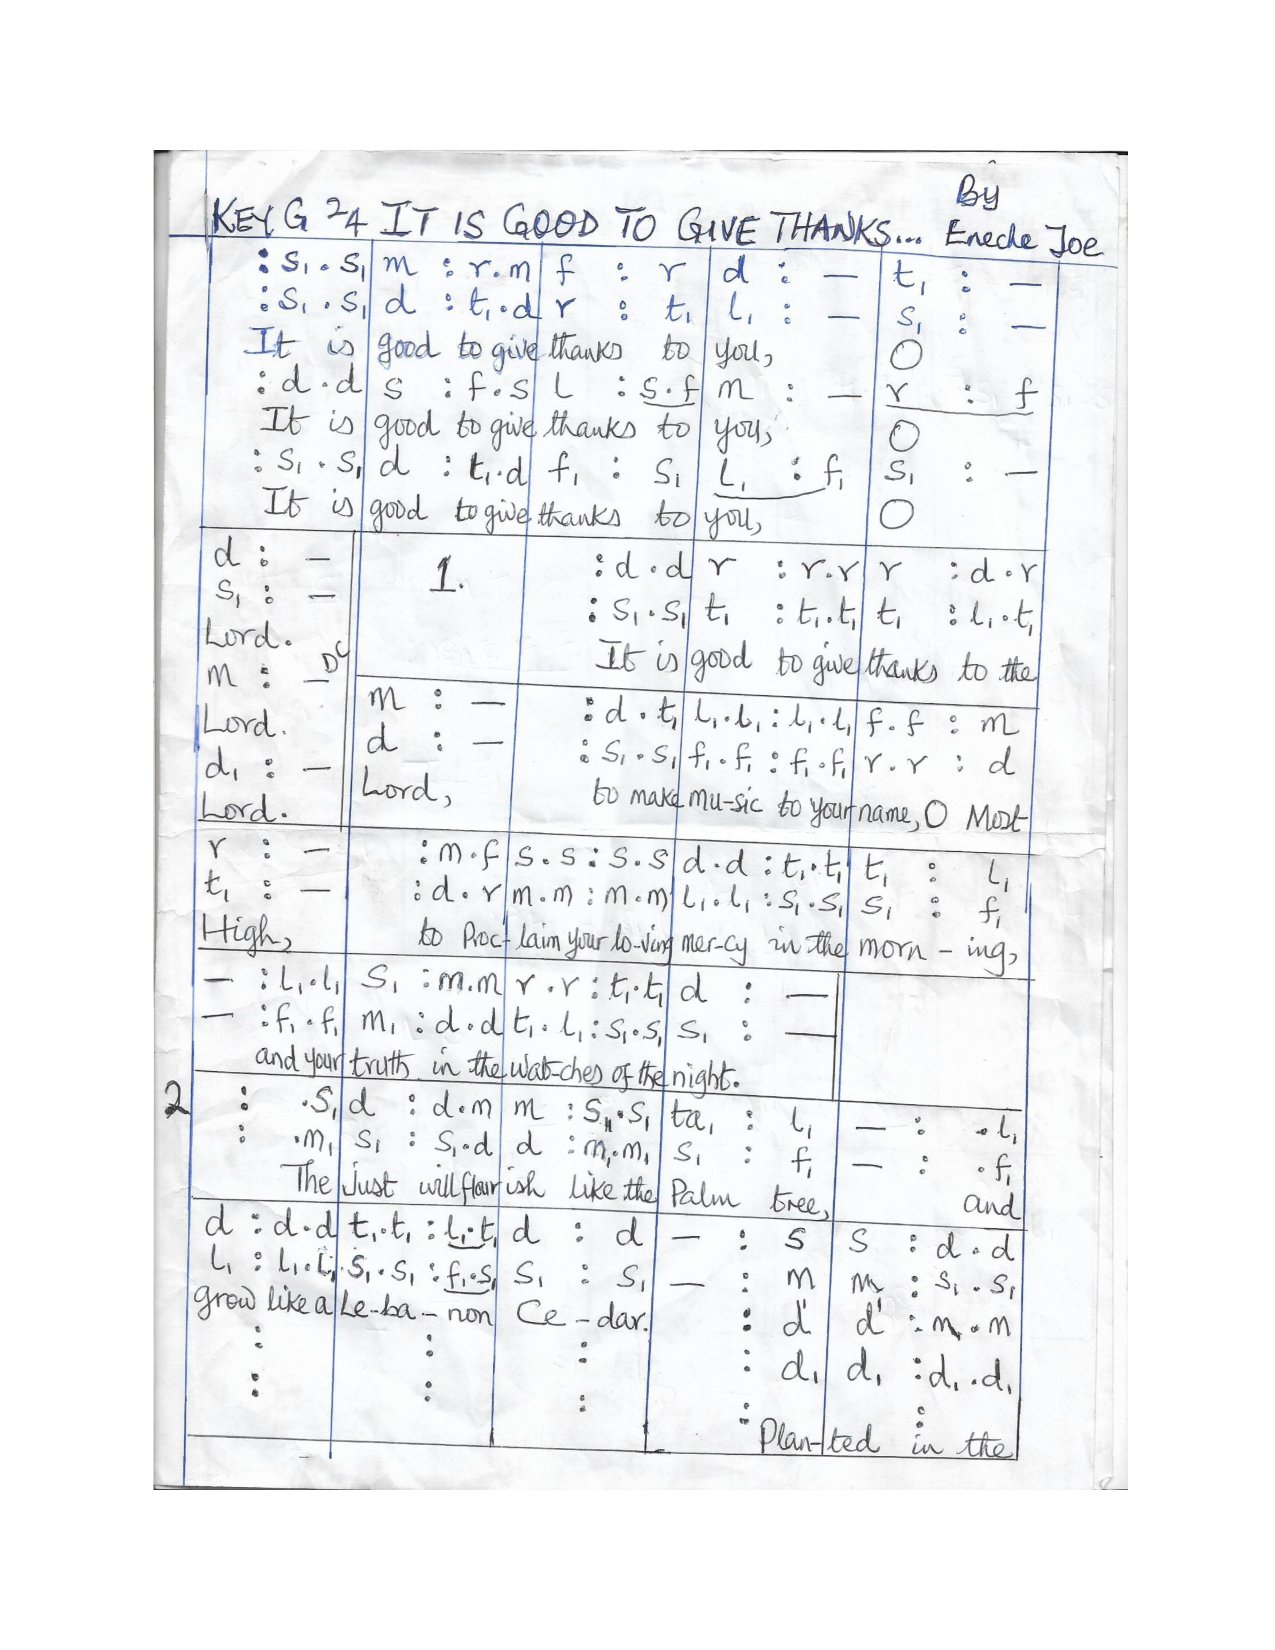 By
KEY G 2/4 IT IS GOOD TO GIVE THANKS... Eneche Joe
:s₁.s₁ | m :r.m | f :r | d :— | t₁ :—
:s₁.s₁ | d :t₁.d | r :t₁ | l₁ :— | s₁ :—
It is good to give thanks to you, O
:d.d | s :f.s | l :s.f | m :— | r :f
It is good to give thanks to you, O
:s₁.s₁ | d :t₁.d | f₁ :s₁ | l₁ :f₁ | s₁ :—
It is good to give thanks to you, O
d :—
s₁ :—
Lord.
m :— DC
Lord.
d₁ :—
Lord.
1. :d.d | r :r.r | r :d.r
:s₁.s₁ | t₁ :t₁.t₁ | t₁ :l₁.t₁
It is good to give thanks to the
m :— | :d.t₁ | l₁.l₁ :l₁.l₁ | f.f :m
d :— | :s₁.s₁ | f₁.f₁ :f₁.f₁ | r.r :d
Lord, to make mu-sic to your name, O Most
r :— | :m.f | s.s :s.s | d.d :t₁.t₁ | t₁ :l₁
t₁ :— | :d.r | m.m :m.m | l₁.l₁ :s₁.s₁ | s₁ :f₁
High, to Proc-laim your lo-ving mer-cy in the morn - ing,
— :l₁.l₁ | s₁ :m.m | r.r :t₁.t₁ | d :—
— :f₁.f₁ | m₁ :d.d | t₁.l₁ :s₁.s₁ | s₁ :—
and your truth in the wat-ches of the night.
2 : .s₁ | d :d.m | m :s₁.s₁ | ta₁ :l₁ | — : .l₁
: .m₁ | s₁ :s₁.d | d :m₁.m₁ | s₁ :f₁ | — : .f₁
The just will flour ish like the Palm tree, and
d :d.d | t₁.t₁ :l₁.t₁ | d :d | — :s | s :d.d
l₁ :l₁.l₁ | s₁.s₁ :f₁.s₁ | s₁ :s₁ | — :m | m :s₁.s₁
grow like a Le-ba-non Ce-dar.
: | : | : | :d' | d' :m.m
: | : | : | :d₁ | d₁ :d₁.d₁
: :
Plan-ted in the